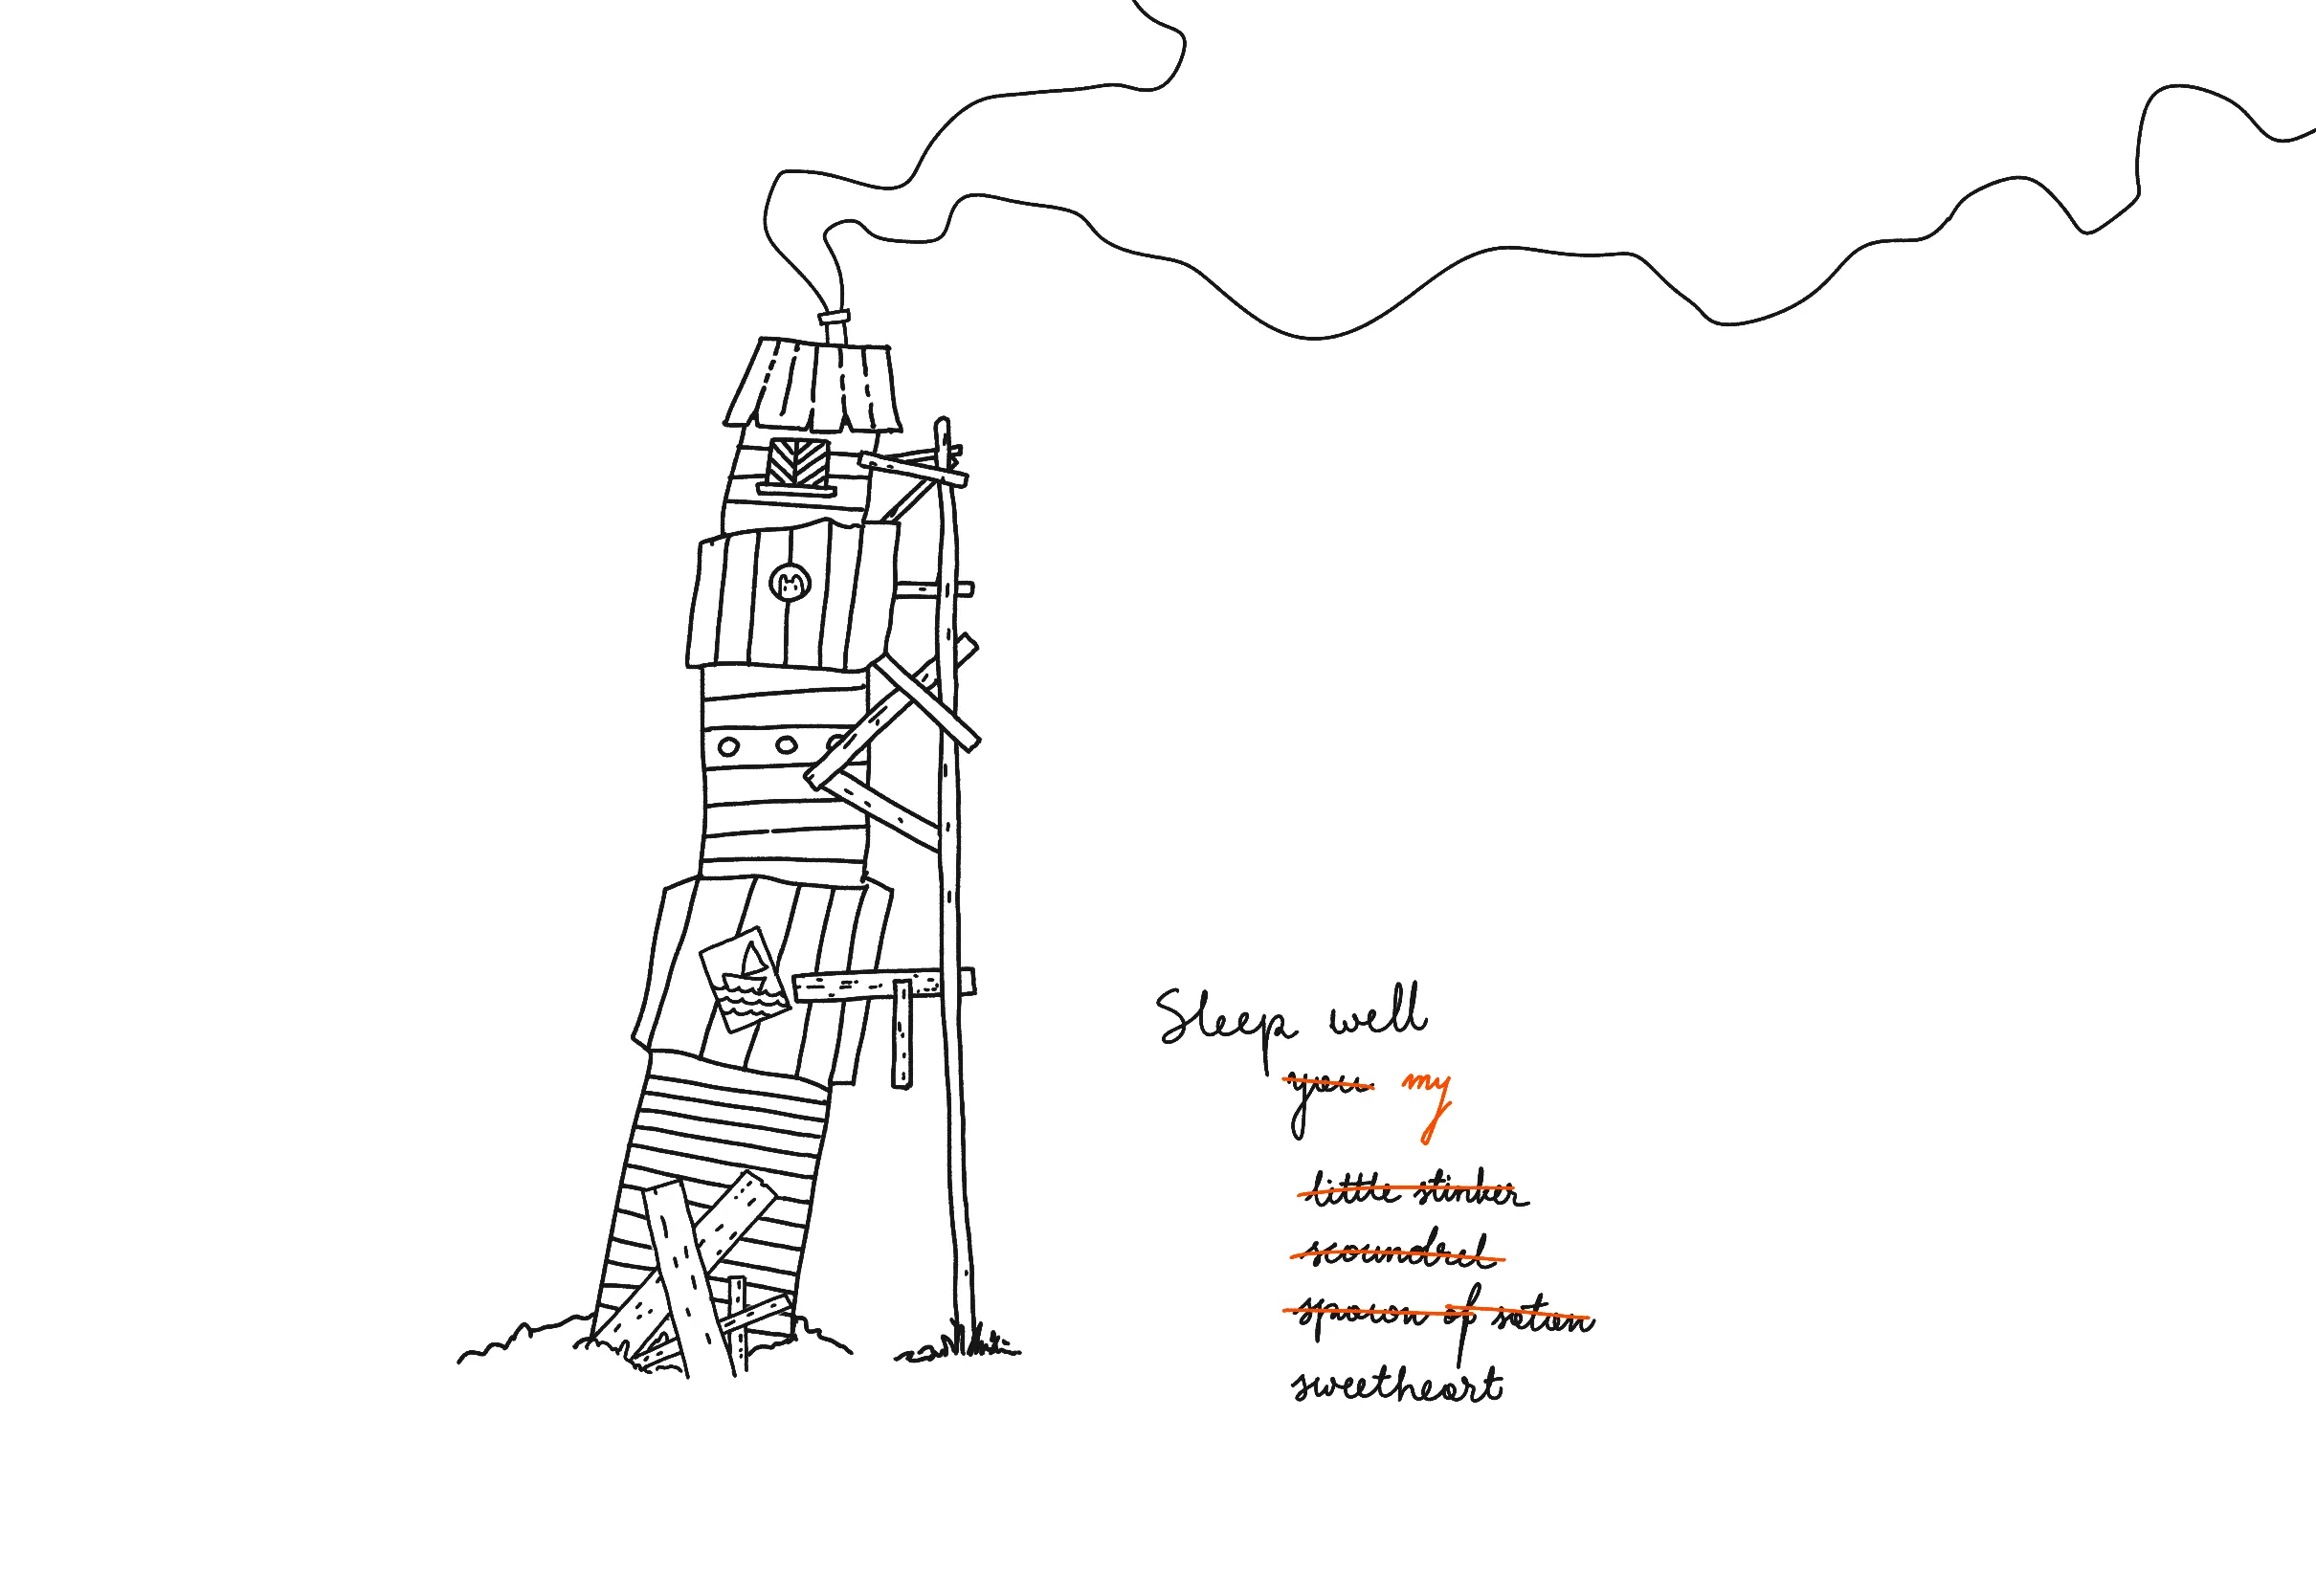 Sleep well
you my
little stinker
scoundrel
spawn of satan
sweetheart